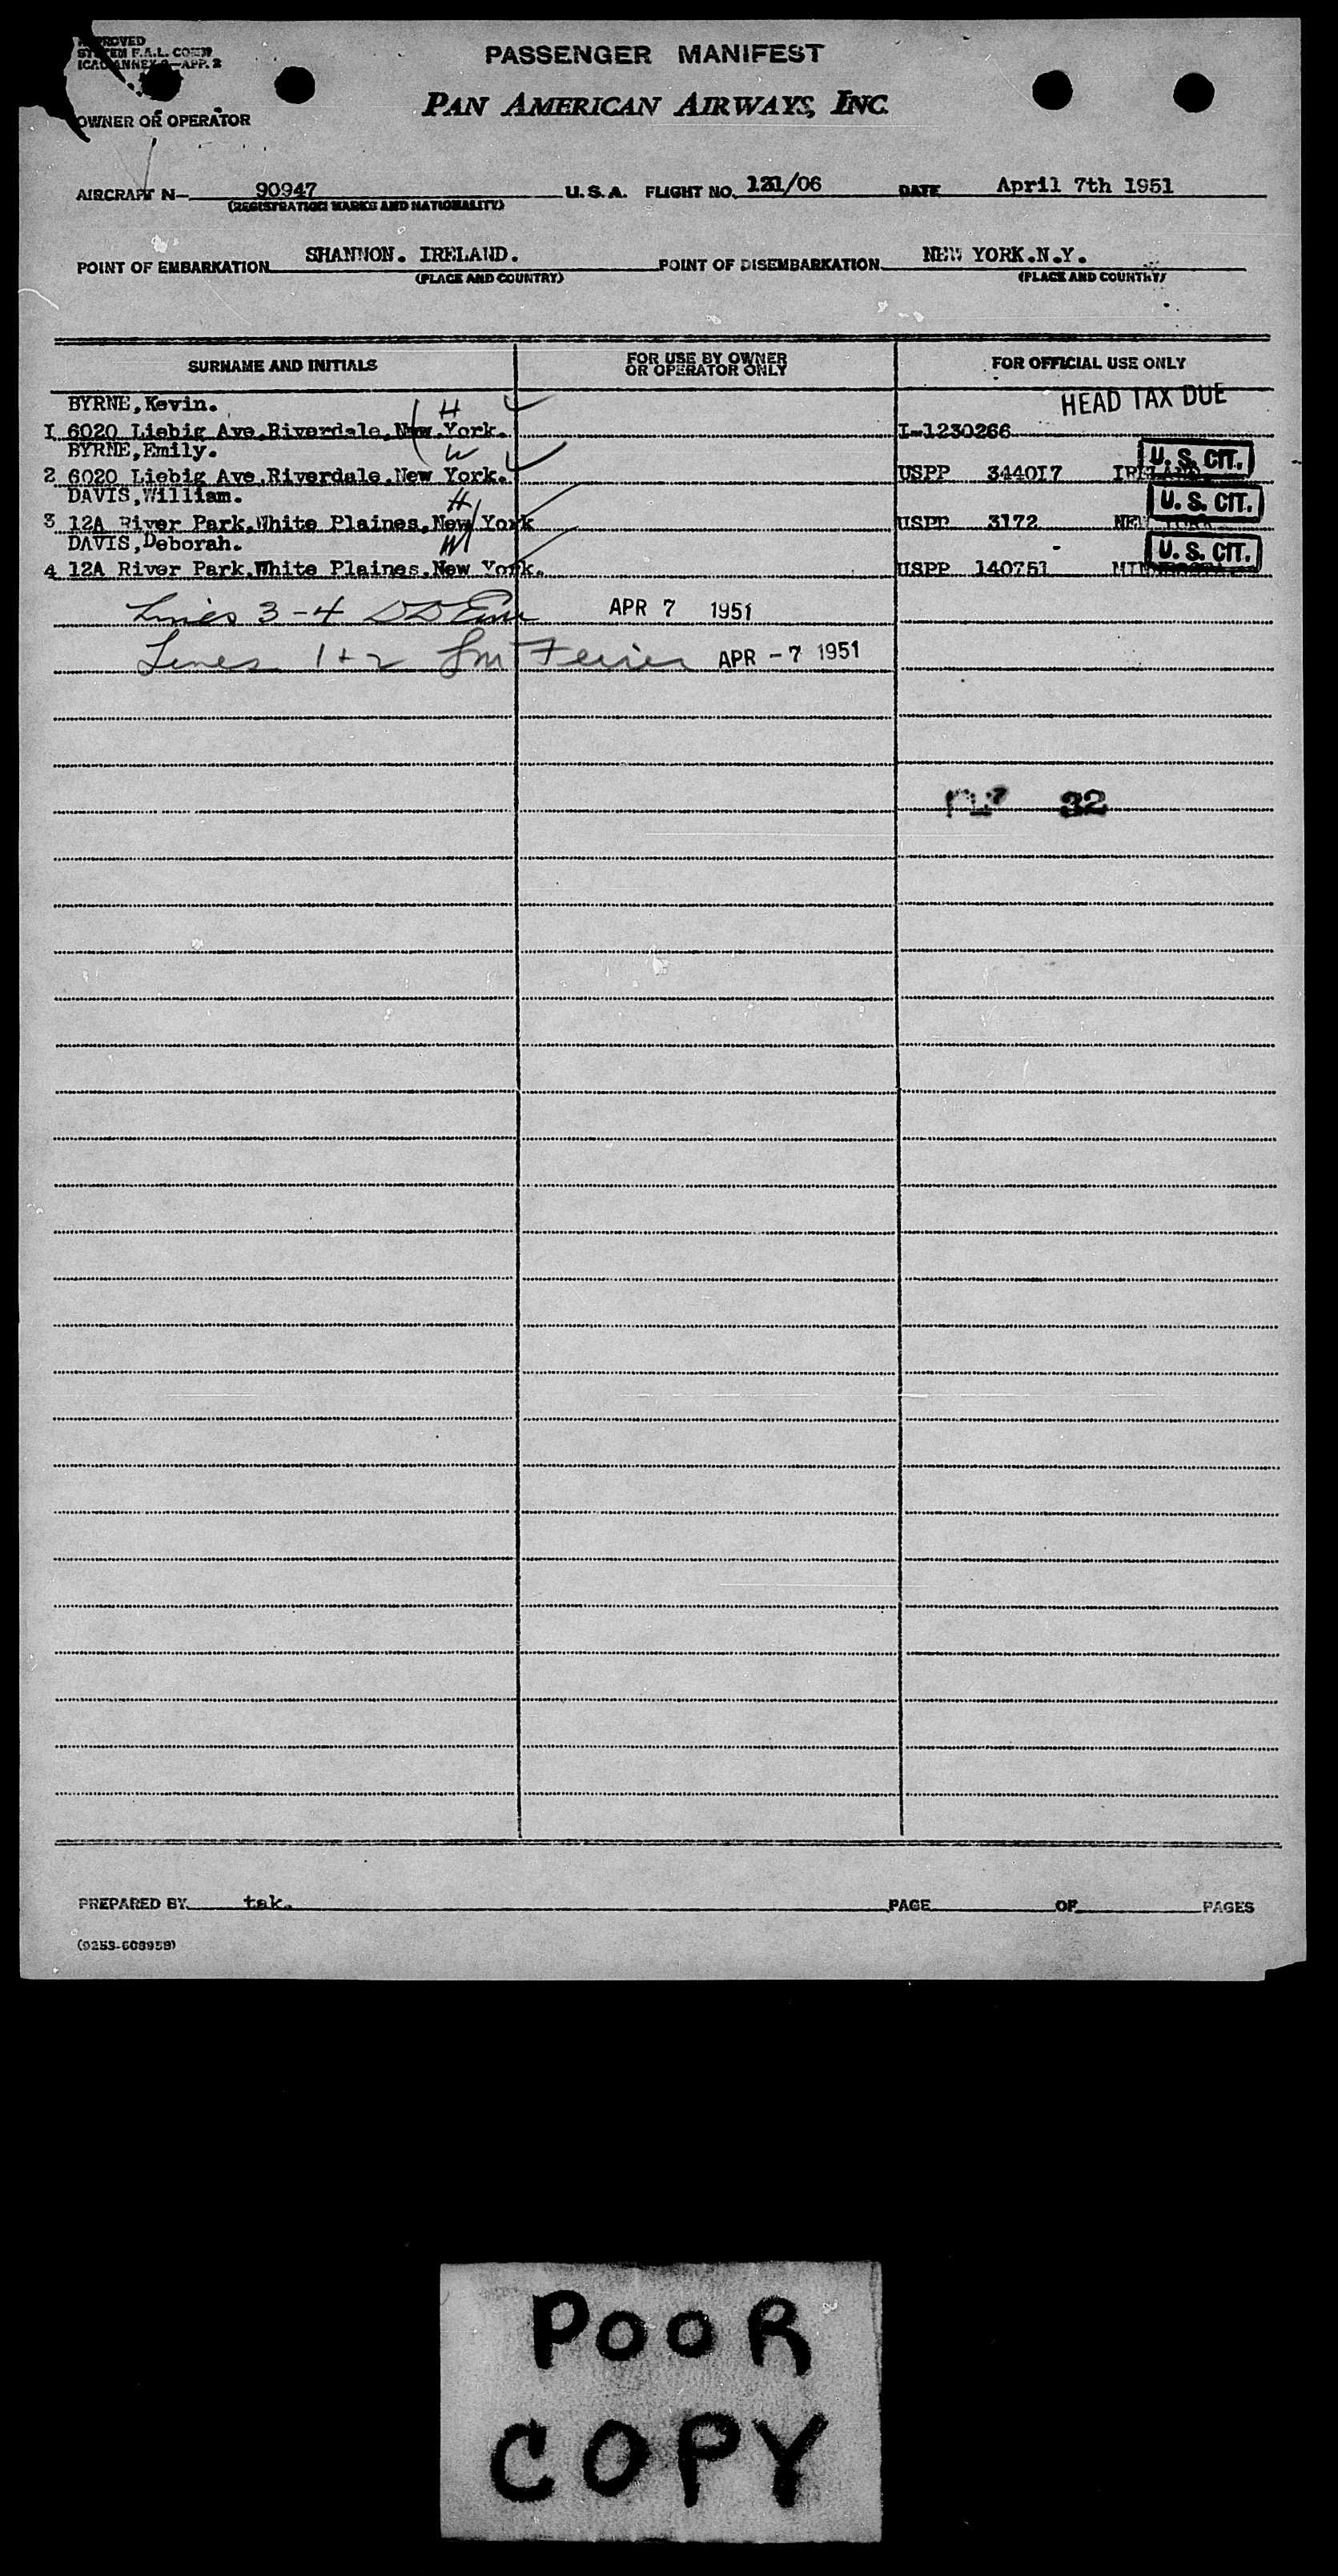 APPROVED
SYSTEM F.A.L. COM'N
ICAO ANNEX 9—APP. 2
PASSENGER MANIFEST
PAN AMERICAN AIRWAYS, INC.
OWNER OR OPERATOR
AIRCRAFT N— 90947 U.S.A. FLIGHT NO. 121/06 DATE April 7th 1951
(REGISTRATION MARKS AND NATIONALITY)
POINT OF EMBARKATION SHANNON. IRELAND. POINT OF DISEMBARKATION NEW YORK.N.Y.
(PLACE AND COUNTRY) (PLACE AND COUNTRY)
SURNAME AND INITIALS FOR USE BY OWNER OR OPERATOR ONLY FOR OFFICIAL USE ONLY
BYRNE,Kevin. H HEAD TAX DUE
I 6020 Liebig Ave,Riverdale,New York. I-1230266
BYRNE,Emily. W
2 6020 Liebig Ave,Riverdale,New York. USPP 344017 IRELAND U.S. CIT.
DAVIS,William. H
3 12A River Park,White Plaines,New York USPP 3172 NEW YORK U.S. CIT.
DAVIS,Deborah. W
4 12A River Park,White Plaines,New York. USPP 140751 MINNESOTA U.S. CIT.
Lines 3-4 APR 7 1951
Lines 1+2 APR -7 1951
32
PREPARED BY tak. PAGE OF PAGES
POOR
COPY